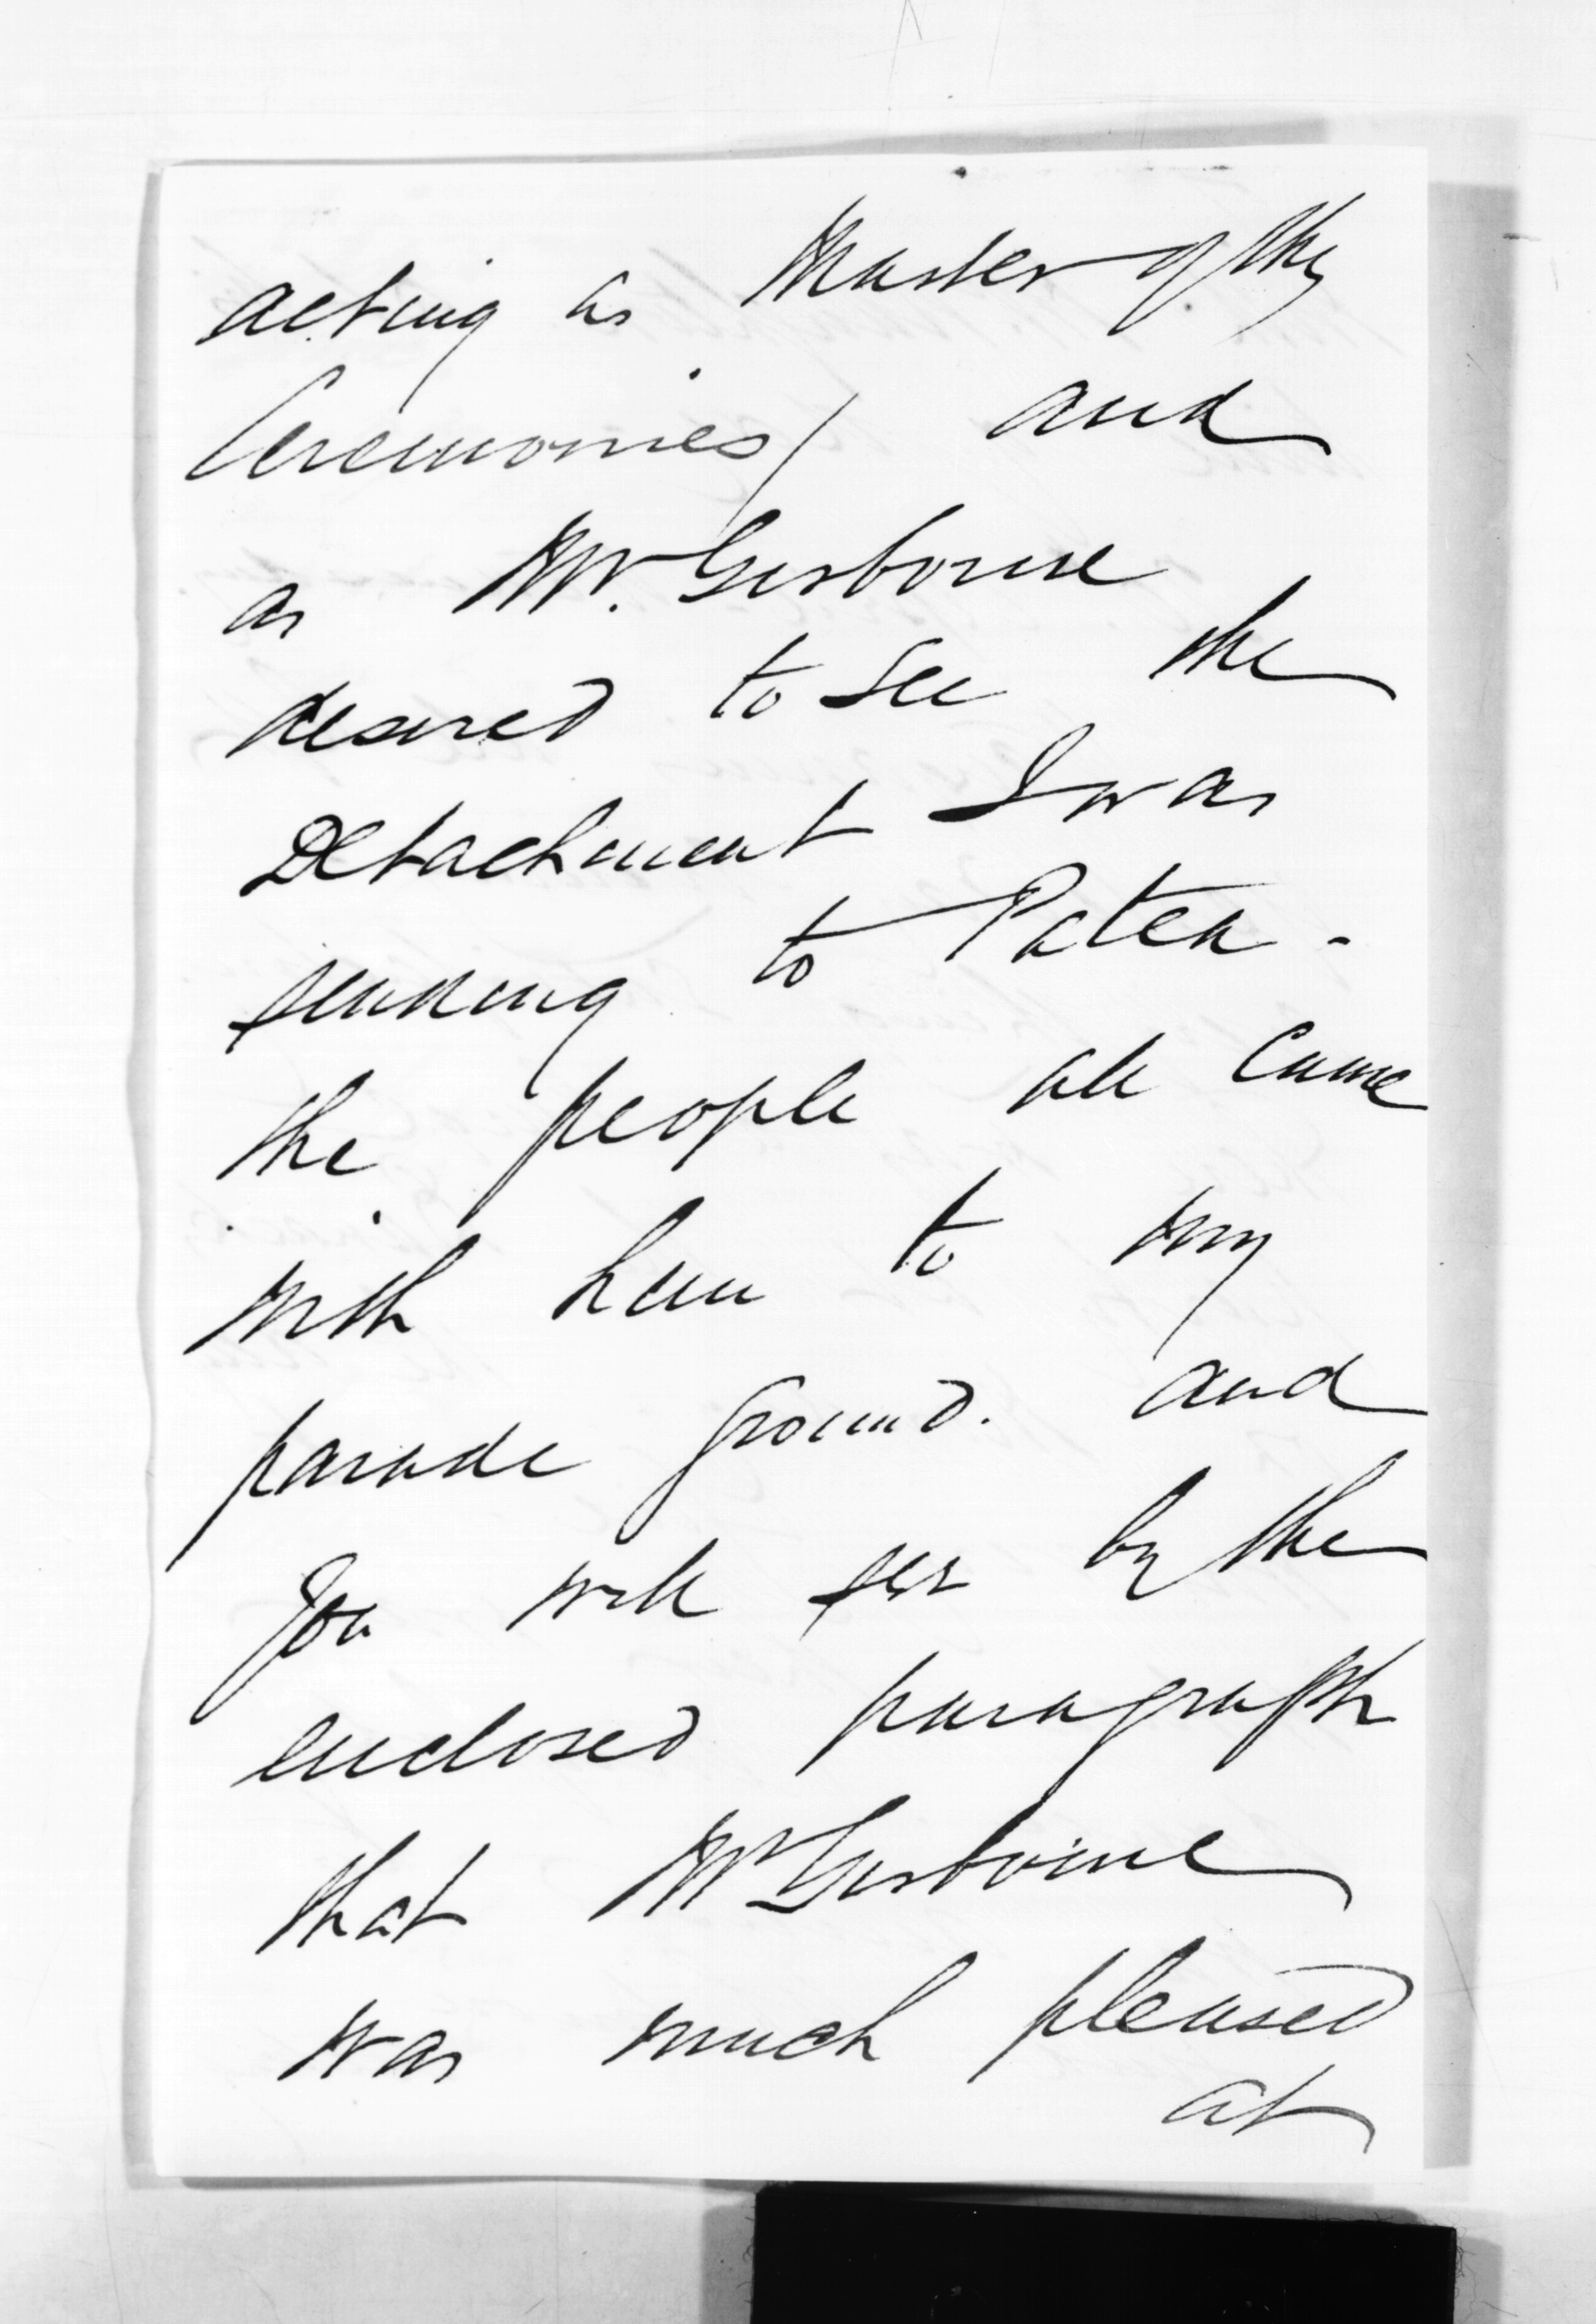 acting as Master of the
Ceremonies) and
as Mr. Gisborne
desired to see the
Detachment I was
sending to Patea -
the people all came
with him to my
parade ground. and
you will see by the
enclosed paragraph
that Mr Gisborne
was much pleased
at